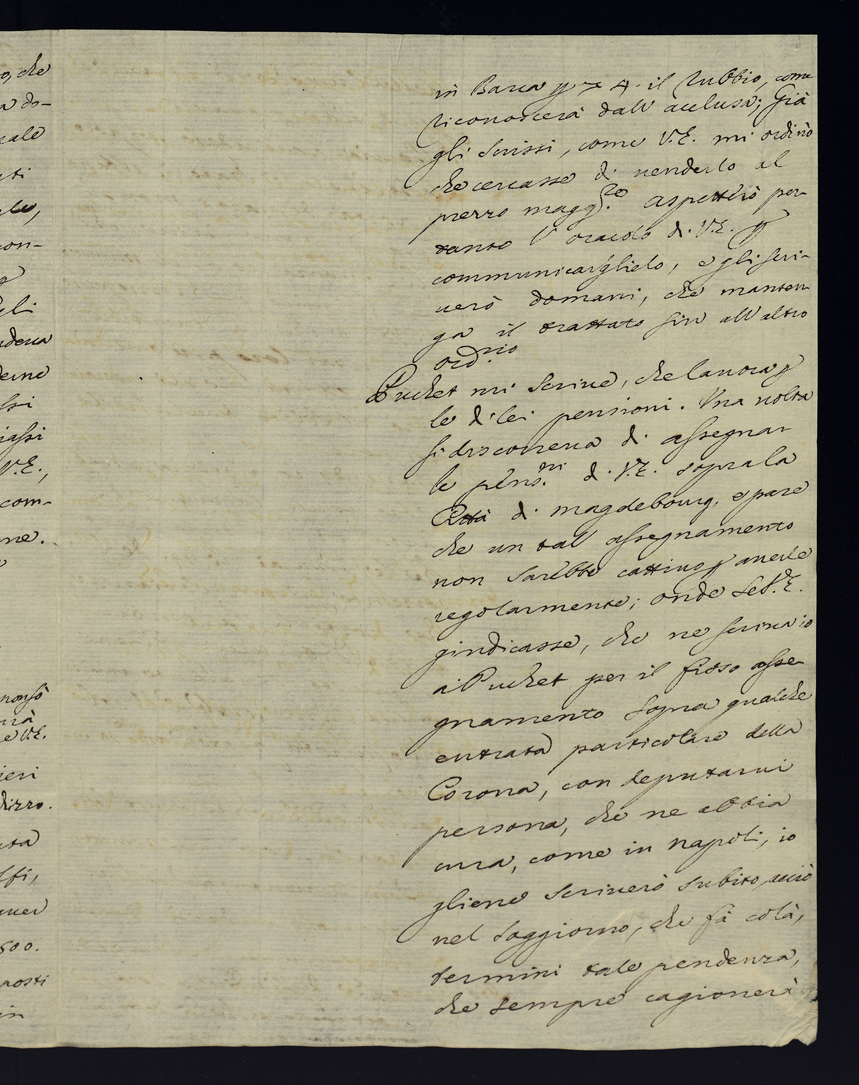 o, che
a do-
cale
ti
on-
eli
deue
ssi
iassi
V.E.,
com-
ne.
V.E.
ieri
dirizzo.
ta
ffi,
500.
posti
in
in Barca 4. il rubbio, come
riconoscerà dall' acclusa; Già
gli scrissi, come V.E. mi ordinò
che cercasse di uenderlo al
prezzo magg.re aspetterò per-
tanto l' oracolo di V.E. p
communicarglielo, e gli scri-
uerò domani, che manten-
ga il trattato fin all' altro
ord.rio
Puchet mi scriue, che lauora p
le di lei pensioni. Una uolta
si discorreua di assegnar
le pens.ni di V.E. sopra la
Città di Magdebourg, e pare
che un tal assegnamento
non sarebbe cattiuo p auerle
regolarmente; onde se V.E.
giudicasse, che ne scriua io
a Puchet per il fisso asse-
gnamento sopra qualche
entrata particolare della
Corona, con deputarui
persona, che ne abbia
cura, come in napoli, io
gliene scriuerò subito, acciò
nel soggiorno, che fà colà,
termini tale pendenza,
che sempre cagionerà